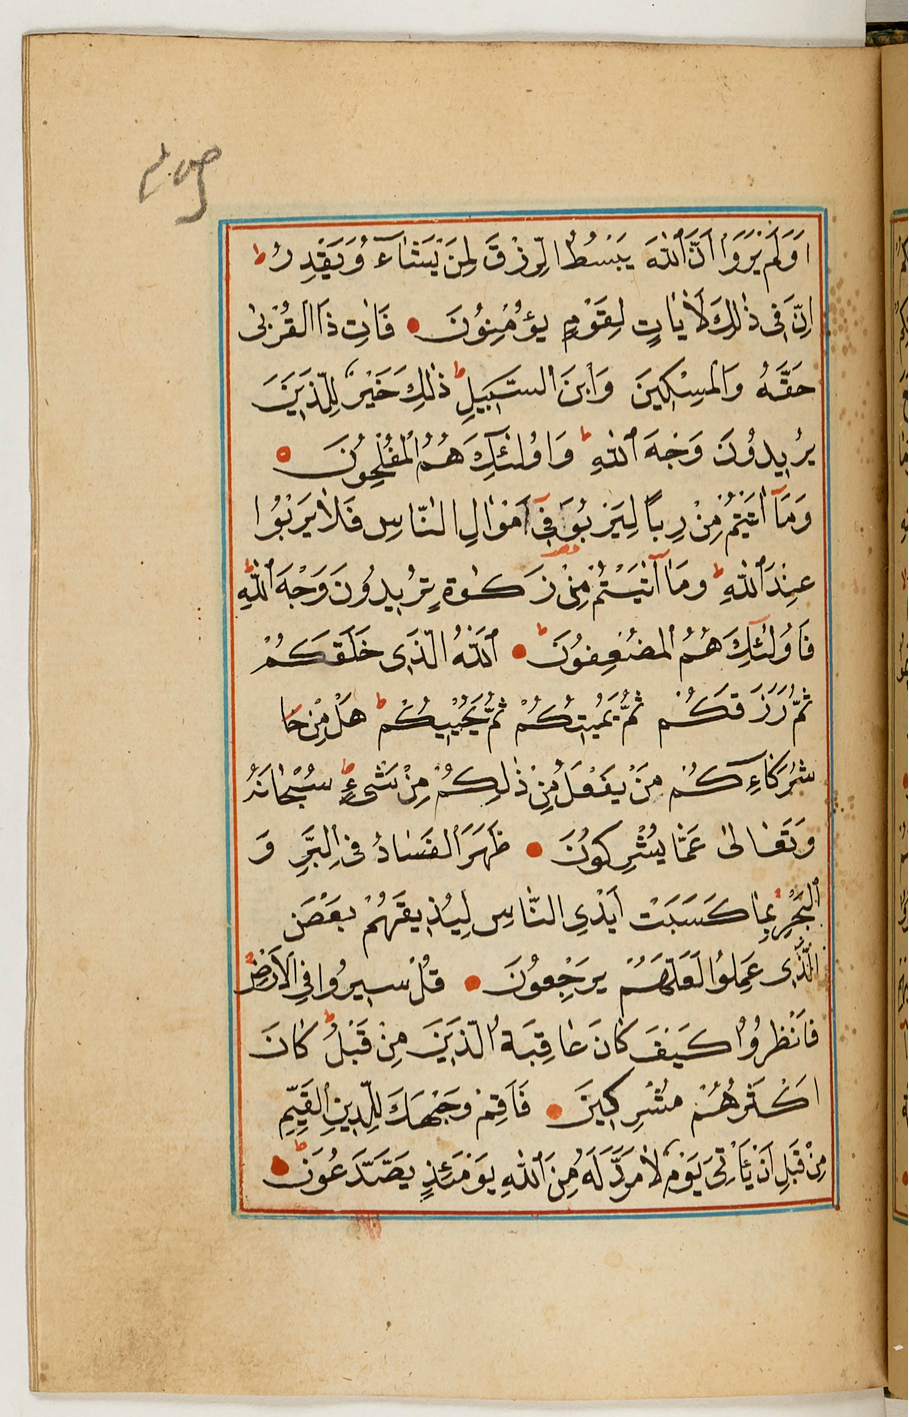 اَوَلَمْ يَرَوْا اَنَّ اللّٰهَ يَبْسُطُ الرِّزْقَ لِمَنْ يَشَاۤءُ وَيَقْدِرُ ط
اِنَّ فِى ذٰلِكَ لَاٰيَاتٍ لِقَوْمٍ يُؤْمِنُونَ فَاٰتِ ذَا الْقُرْبٰى
حَقَّهُ وَالْمِسْكِينَ وَابْنَ السَّبِيلِ ط ذٰلِكَ خَيْرٌ لِلَّذِينَ
يُرِيدُونَ وَجْهَ اللّٰهِ ط وَاُولٰۤئِكَ هُمُ الْمُفْلِحُونَ
وَمَاۤ اٰتَيْتُمْ مِنْ رِبًا لِيَرْبُوَا فِىۤ اَمْوَالِ النَّاسِ فَلَا يَرْبُوا
عِنْدَ اللّٰهِ ط وَمَاۤ اٰتَيْتُمْ مِنْ زَكٰوةٍ تُرِيدُونَ وَجْهَ اللّٰهِ
فَاُولٰۤئِكَ هُمُ الْمُضْعِفُونَ ط اَللّٰهُ الَّذِى خَلَقَكُمْ
ثُمَّ رَزَقَكُمْ ثُمَّ يُمِيتُكُمْ ثُمَّ يُحْيِيكُمْ ط هَلْ مِنْ
شُرَكَاۤئِكُمْ مَنْ يَفْعَلُ مِنْ ذٰلِكُمْ مِنْ شَىْءٍ ط سُبْحَانَهُ
وَتَعَالٰى عَمَّا يُشْرِكُونَ ظَهَرَ الْفَسَادُ فِى الْبَرِّ وَ
الْبَحْرِ بِمَا كَسَبَتْ اَيْدِى النَّاسِ لِيُذِيقَهُمْ بَعْضَ
الَّذِى عَمِلُوا لَعَلَّهُمْ يَرْجِعُونَ قُلْ سِيرُوا فِى الْاَرْضِ
فَانْظُرُوا كَيْفَ كَانَ عَاقِبَةُ الَّذِينَ مِنْ قَبْلُ ط كَانَ
اَكْثَرُهُمْ مُشْرِكِينَ فَاَقِمْ وَجْهَكَ لِلدِّينِ الْقَيِّمِ
مِنْ قَبْلِ اَنْ يَأْتِىَ يَوْمٌ لَا مَرَدَّ لَهُ مِنَ اللّٰهِ يَوْمَئِذٍ يَصَّدَّعُونَ ط